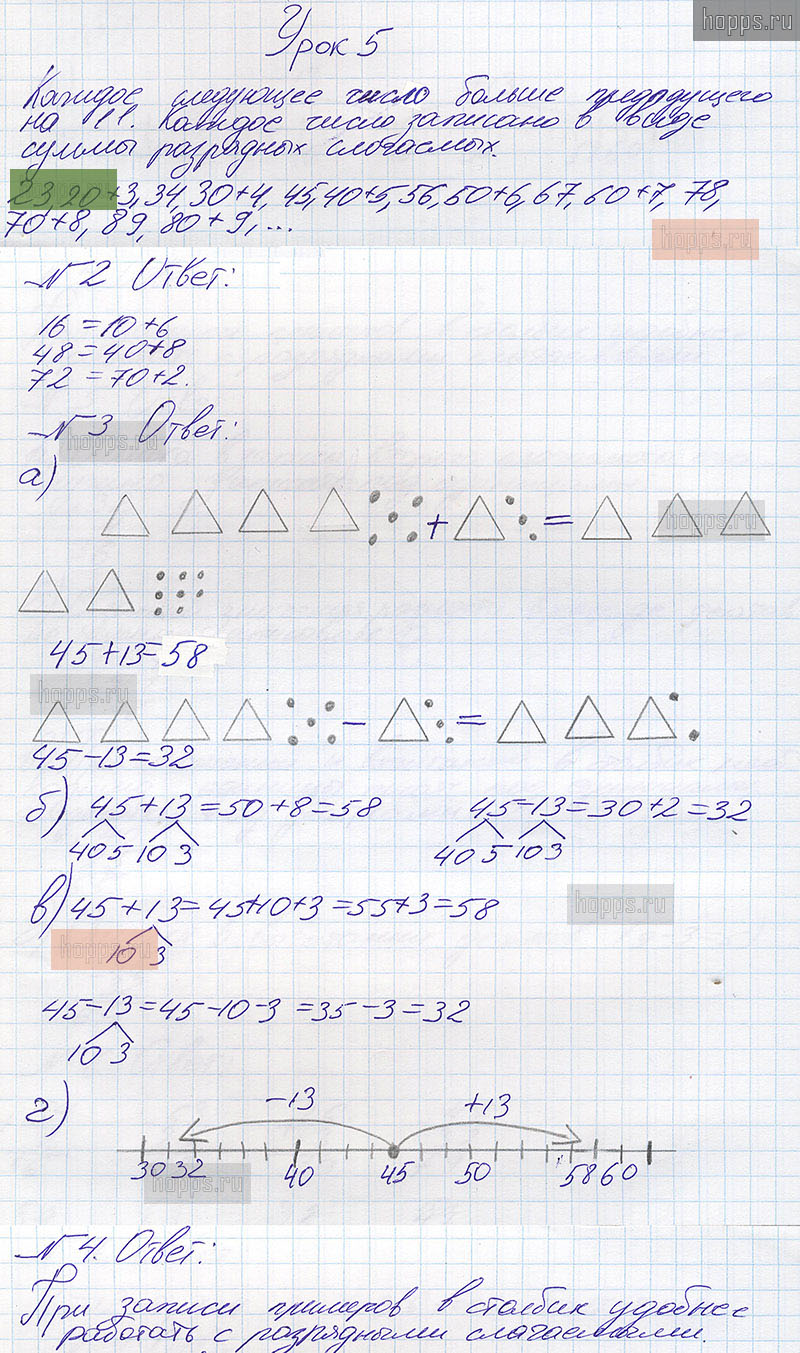 hopps.ru
Урок 5
Каждое следующее число больше предыдущего
на 11. Каждое число записано в виде
суммы разрядных слогаемых.
23, 20+3, 34, 30+4, 45, 40+5, 56, 50+6, 67, 60+7, 78,
70+8, 89, 80+9, ...
hopps.ru
№2 Ответ:
16 = 10+6
48 = 40+8
72 = 70+2.
№3 Ответ:
hopps.ru
а)
+ =
hopps.ru
45+13=58
hopps.ru
- =
45-13=32
б) 45+13=50+8=58 45-13=30+2=32
40 5 10 3 40 5 10 3
в) 45+13=45+10+3=55+3=58
hopps.ru
10 3
45-13=45-10-3=35-3=32
10 3
г)
-13 +13
30 32 40 45 50 58 60
hopps.ru
№4. Ответ:
При записи примеров в столбик удобнее
работать с разрядными слагаемыми.